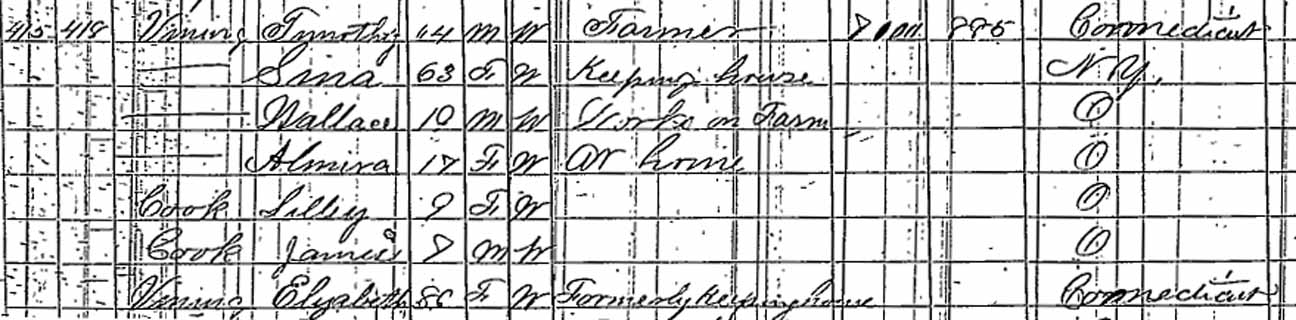 415 418 Vining Timothy 64 M W Farmer 8100 885 Connecticut
—— Sina 63 F W Keeping house N Y.
—— Wallace 10 M W Works on Farm O
—— Almira 17 F W At home O
Cook Lilley 9 F W O
Cook James 8 M W O
Vining Elizabeth 86 F W Formerly Keeping house Connecticut